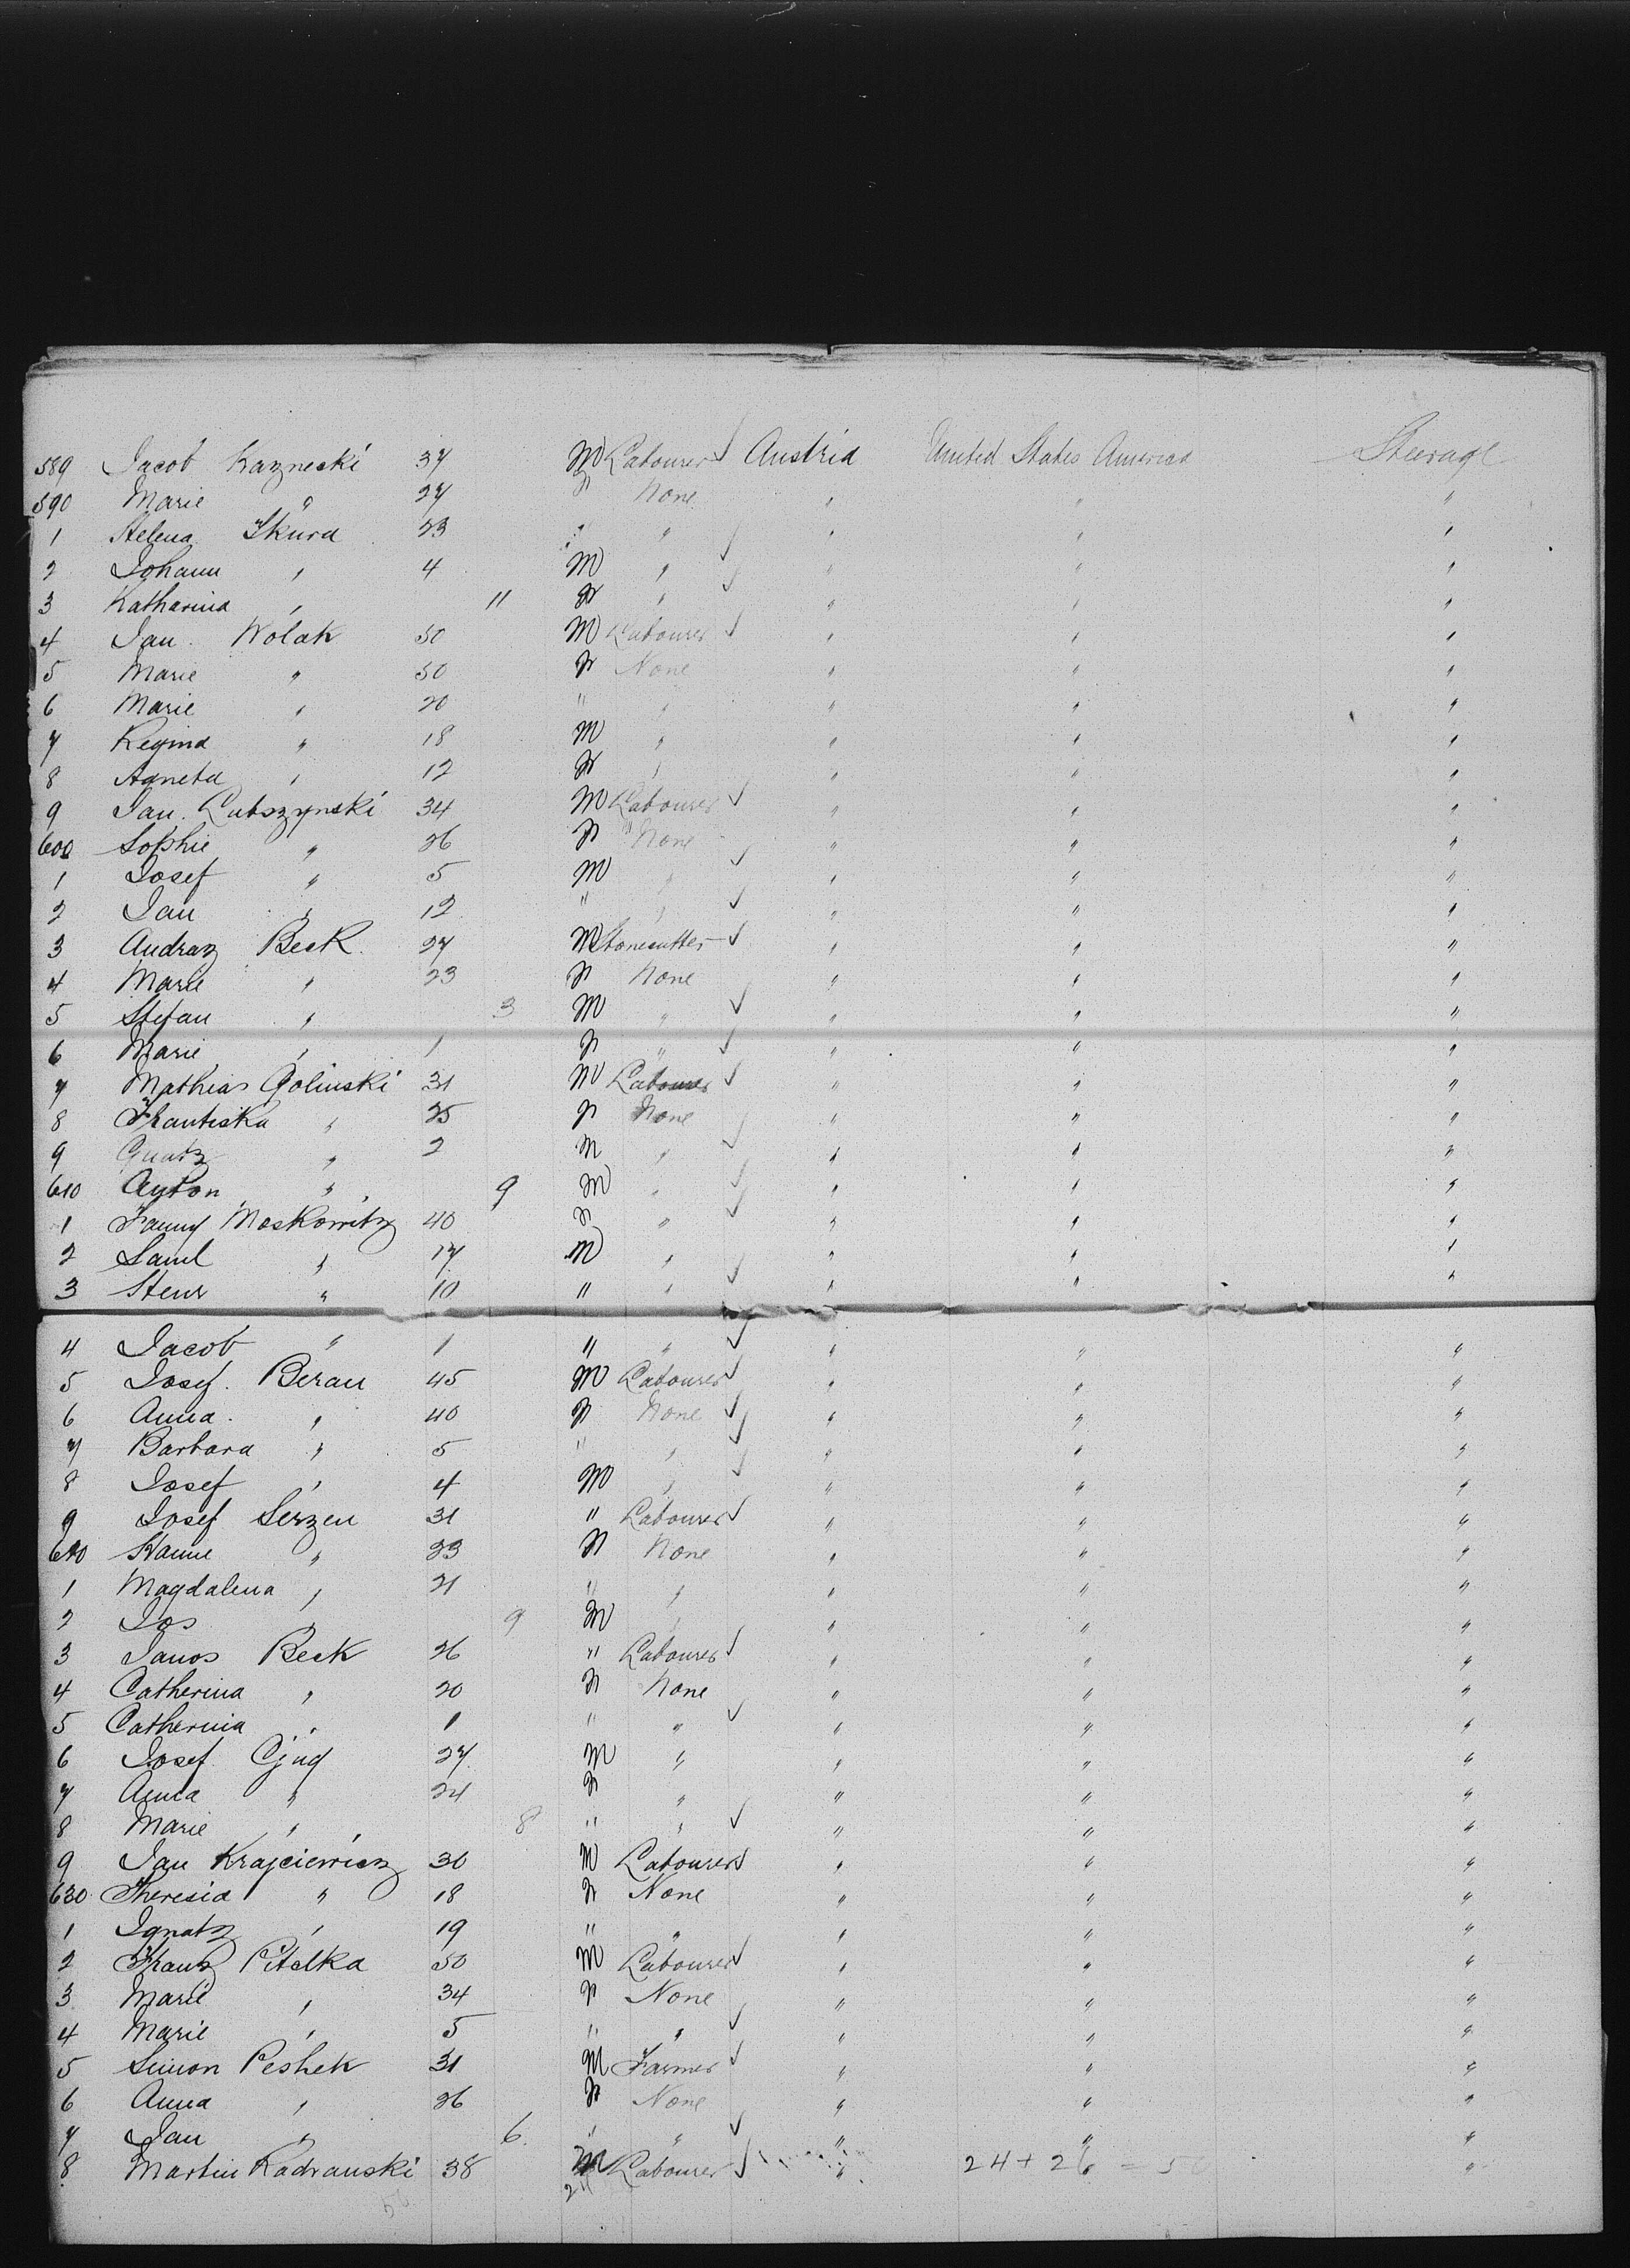 589 Jacob Kazneski 37 M Labourer ✓ Austria United States America Steerage
590 Marie " 27 F None " " "
1 Helena Skura 23 " " " " "
2 Johann " 4 M " ✓ " " "
3 Katharina " 11 F " ✓ " " "
4 Jan Wolak 50 M Labourer ✓ " " "
5 Marie " 50 F None " " "
6 Marie " 20 " " " " "
7 Regina " 18 M " " " "
8 Agneta " 12 F " " " "
9 Jan. Lubszynski 34 M Labourer ✓ " " "
600 Sophie " 26 F None " " "
1 Josef " 5 M " ✓ " " "
2 Jan " 12 " " ✓ " " "
3 Andraz Beck 27 M Stonecutter ✓ " " "
4 Marie " 23 F None " " "
5 Stefan " 3 M " ✓ " " "
6 Marie " 1 F " ✓ " " "
7 Mathias Golinski 31 M Labourer ✓ " " "
8 Frantiska " 25 F None " " "
9 " 2 M " ✓ " " "
610 Anton " 9 M " ✓ " " "
1 Fanny Moskowitz 40 F " ✓ " " "
2 Saml " 17 M " " " "
3 " 10 " " ✓ " " "
4 Jacob " 1 " " ✓ " " "
5 Josef. Beran 45 M Labourer ✓ " " "
6 Anna. " 40 F None ✓ " " "
7 Barbara " 5 " " ✓ " " "
8 Josef " 4 M " ✓ " " "
9 Josef Serzen 31 " Labourer ✓ " " "
620 " 23 F None " " "
1 Magdalena " 21 " " " " "
2 Jos " 9 M " " " "
3 Janos Beck 26 " Labourer ✓ " " "
4 Catherina " 20 F None " " "
5 Catherina " 1 " " ✓ " " "
6 Josef 27 M " " " "
7 Anna " 24 F " " " "
8 Marie " 8 " " ✓ " " "
9 Jan Krajciewicz 30 M Labourer ✓ " " "
630 Theresia " 18 F None " " "
1 Ignatz " 19 " " " " "
2 Franz Pitelka 50 M Labourer ✓ " " "
3 Marie " 34 F None " " "
4 Marie " 5 " " ✓ " " "
5 Simon Peshek 31 M Farmer ✓ " " "
6 Anna " 26 F None " " "
7 Jan " 6 " " ✓ " " "
8 Martin Kadranski 38 M Labourer ✓ " 24 + 26 = 50 "